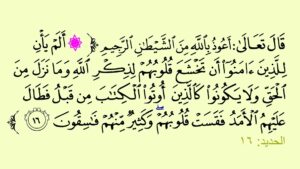 قَالَ تَعَالَى: أَعُوذُ بِاللَّهِ مِنَ الشَّيْطَانِ الرَّجِيمِ ﴿ ۞ أَلَمْ يَأْنِ
لِلَّذِينَ ءَامَنُوٓا۟ أَن تَخْشَعَ قُلُوبُهُمْ لِذِكْرِ ٱللَّهِ وَمَا نَزَلَ مِنَ
ٱلْحَقِّ وَلَا يَكُونُوا۟ كَٱلَّذِينَ أُوتُوا۟ ٱلْكِتَٰبَ مِن قَبْلُ فَطَالَ
عَلَيْهِمُ ٱلْأَمَدُ فَقَسَتْ قُلُوبُهُمْ ۖ وَكَثِيرٌ مِّنْهُمْ فَٰسِقُونَ ١٦ ﴾
الحديد: ١٦